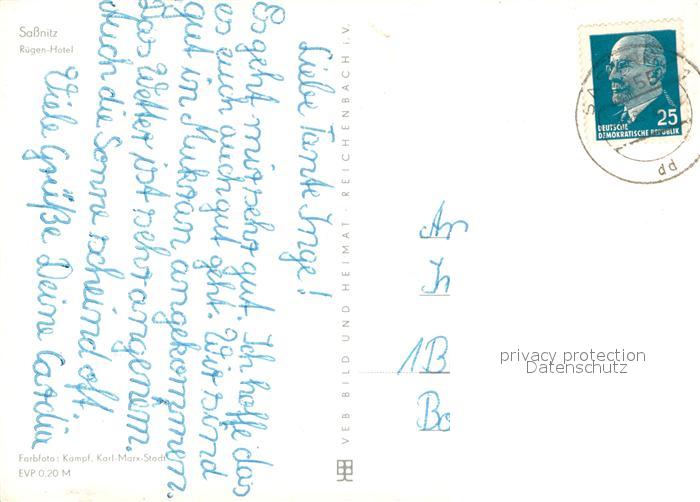 Saßnitz
Rügen-Hotel
Liebe Tante Inge!
Es geht mir sehr gut. Ich hoffe das
es euch auch gut geht. Wir sind
gut in Mukran angekommen.
Das Wetter ist sehr angenem.
Auch die Sonne scheind oft.
Viele Grüße Deine
Farbfoto: Kämpf, Karl-Marx-Stadt
EVP 0.20 M
VEB BILD UND HEIMAT · REICHENBACH i.V.
25
DEUTSCHE
DEMOKRATISCHE REPUBLIK
dd
An
1B
privacy protection
Datenschutz